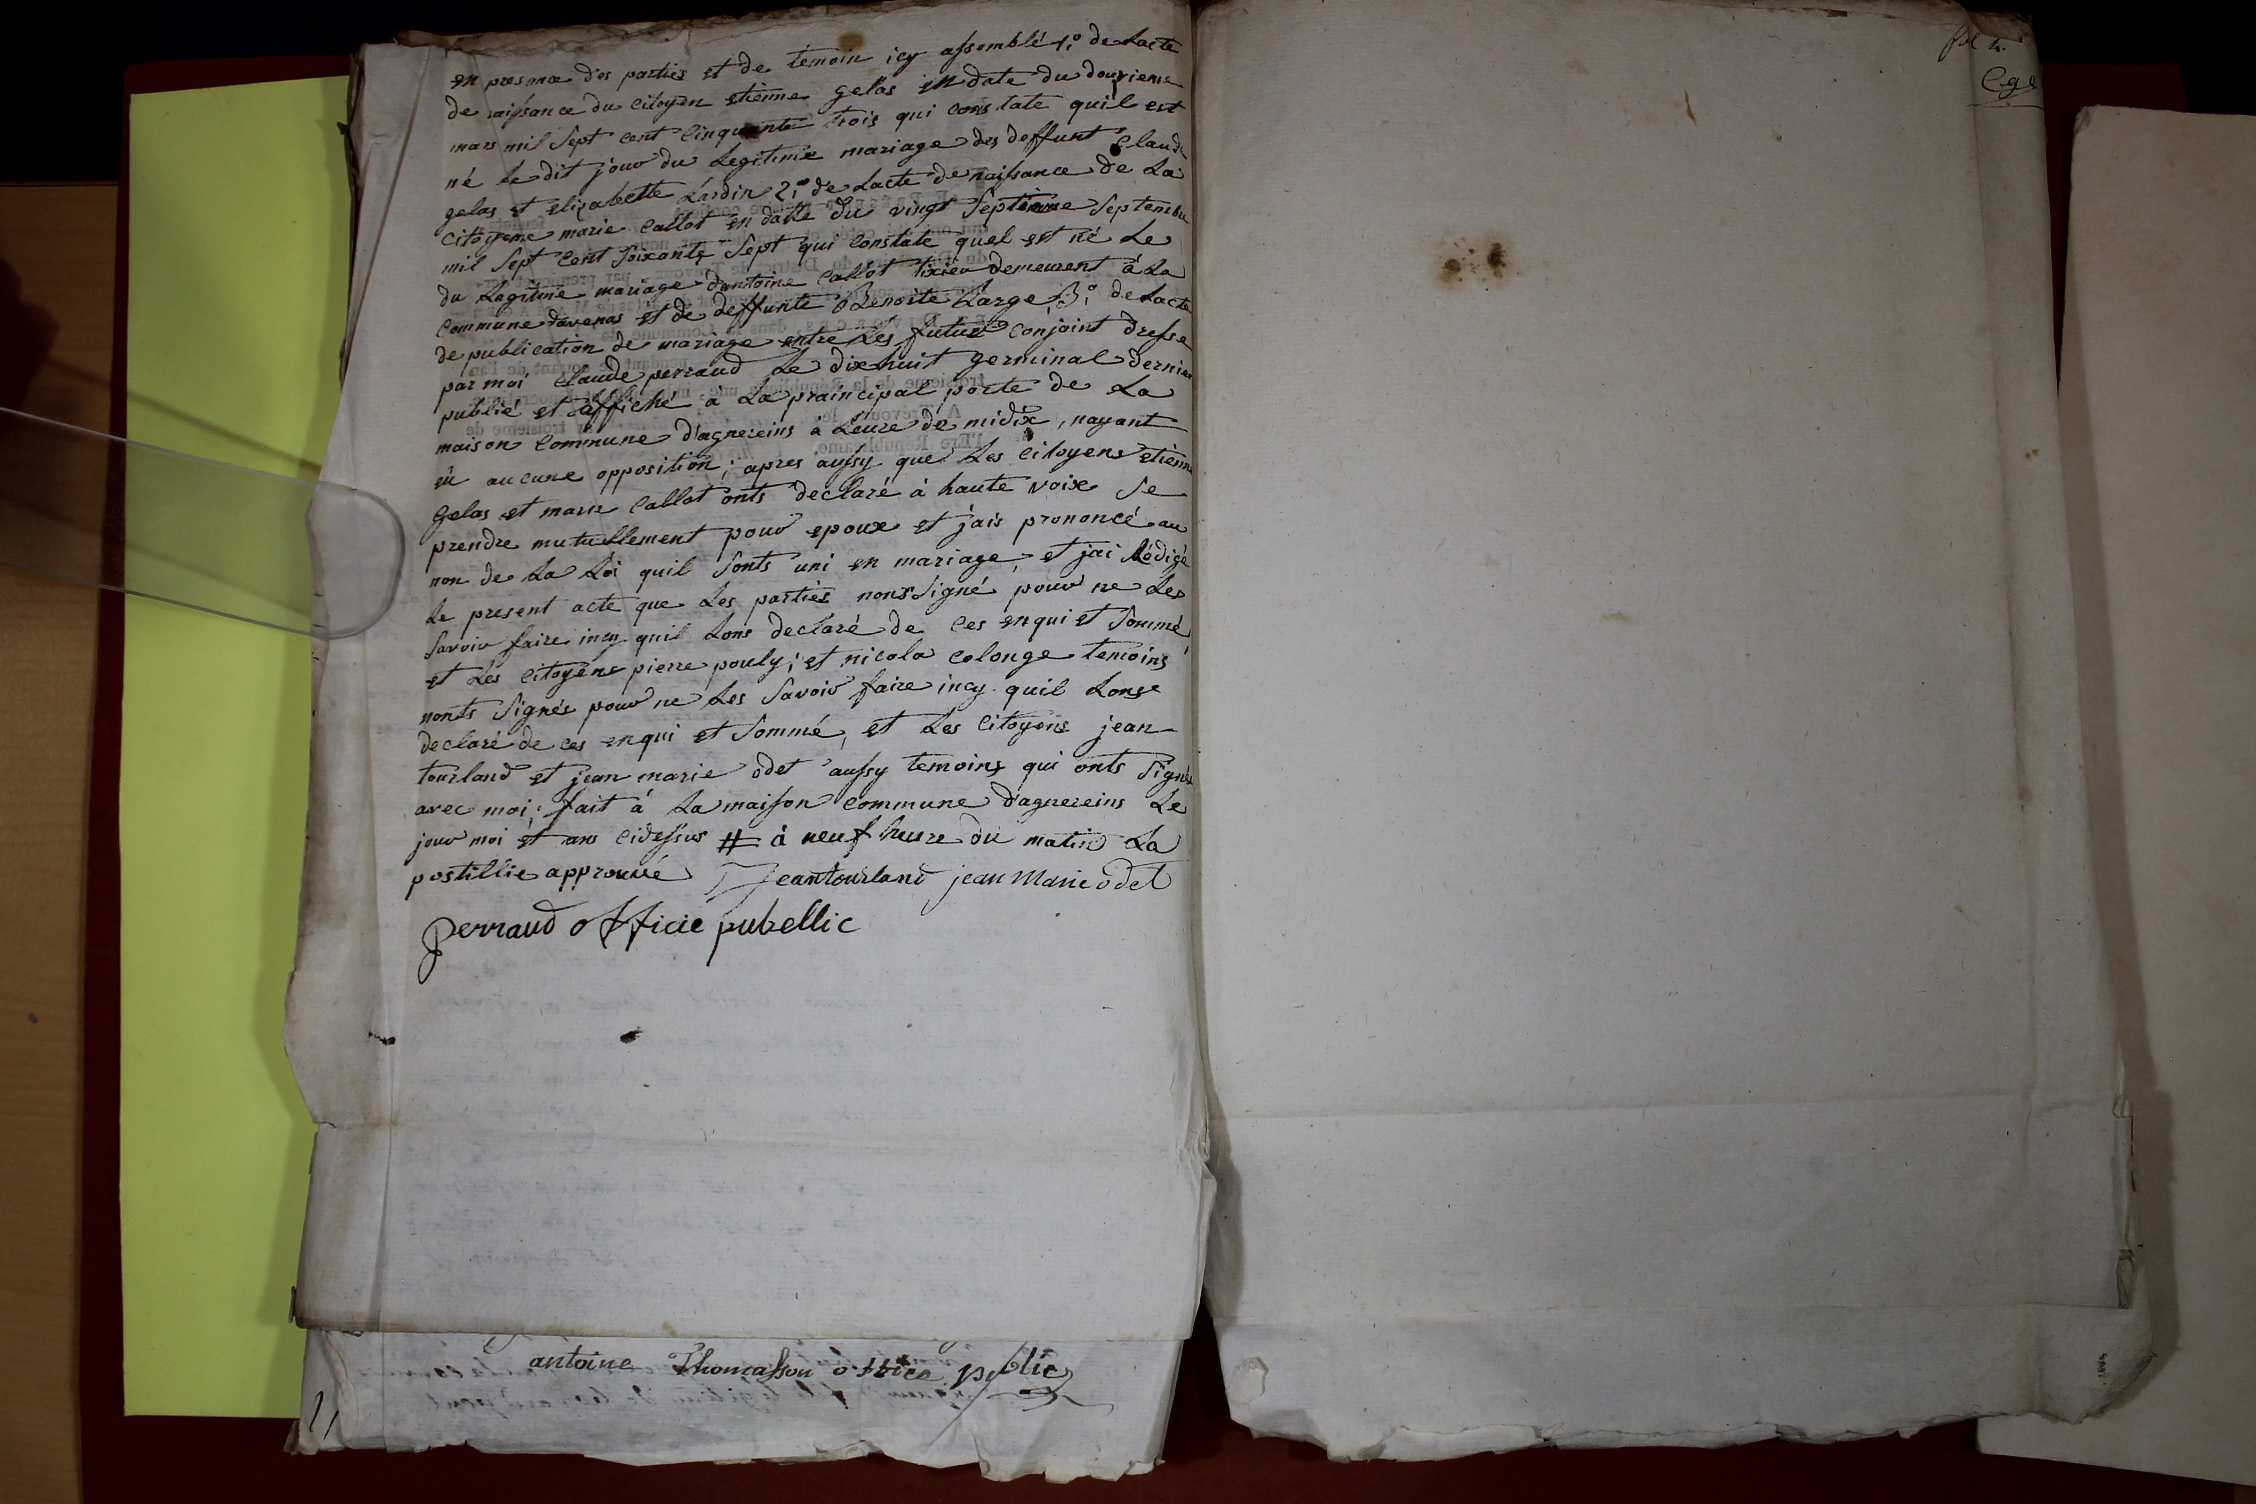 en presence des parties et de temoin icy assemblé 1.° de Lacte
de naissance du citoyen etienne gelas en date du douzieme
mars mil Sept cent Cinquante trois qui constate quil est
né le dit jour du Legitime mariage des deffunt Claude
gelas et elizabette Lardin 2.° de Lacte de naissance de La
Citoyenne marie Callot en datte du vingt Septieme Septembre
mil Sept Cent Soixante Sept qui Constate quel est né Le
du Lagitime mariage dantoine Callot tixieu demeurent à La
Commune davenas et de deffunte Benoite Large 3.° de Lacte
de publication de mariage entre Les futur Conjoint dresse
par moi Claude perraud Le dixhuit germinal dernier
publié et affiché à La praincipal porte de La
maison Commune d'agnereins à Leure de midix, nayant
eü aucune opposition; apres aussy que Les Citoyens etienne
gelas et marie Callot onts declaré à haute voix Se
prendre mutuellement pour epoux et jais prononcé au
non de La Loi quil Sonts uni en mariage, et jai Rédigé
Le present acte que Les parties nons Signé pour ne Les
Savoir faire incy quil Lons declaré de Ces enqui et Sommé,
et Lés Citoyens pierre pouly; et nicola Colonge temoins
nonts Signés pour ne Les Savoir faire incy quil Lons
declaré de ces enqui et Sommé, et Les Citoyens jean
tourland et jean marie odet aussy temoins qui onts Signés
avec moi; fait à La maison Commune d'agnereins Le
jour moi et ans Cidessus # à neuf heure du matin La
postillie approuvé Jean tourland jean Marie odet
perraud officie pubellic
antoine Thomasson office public